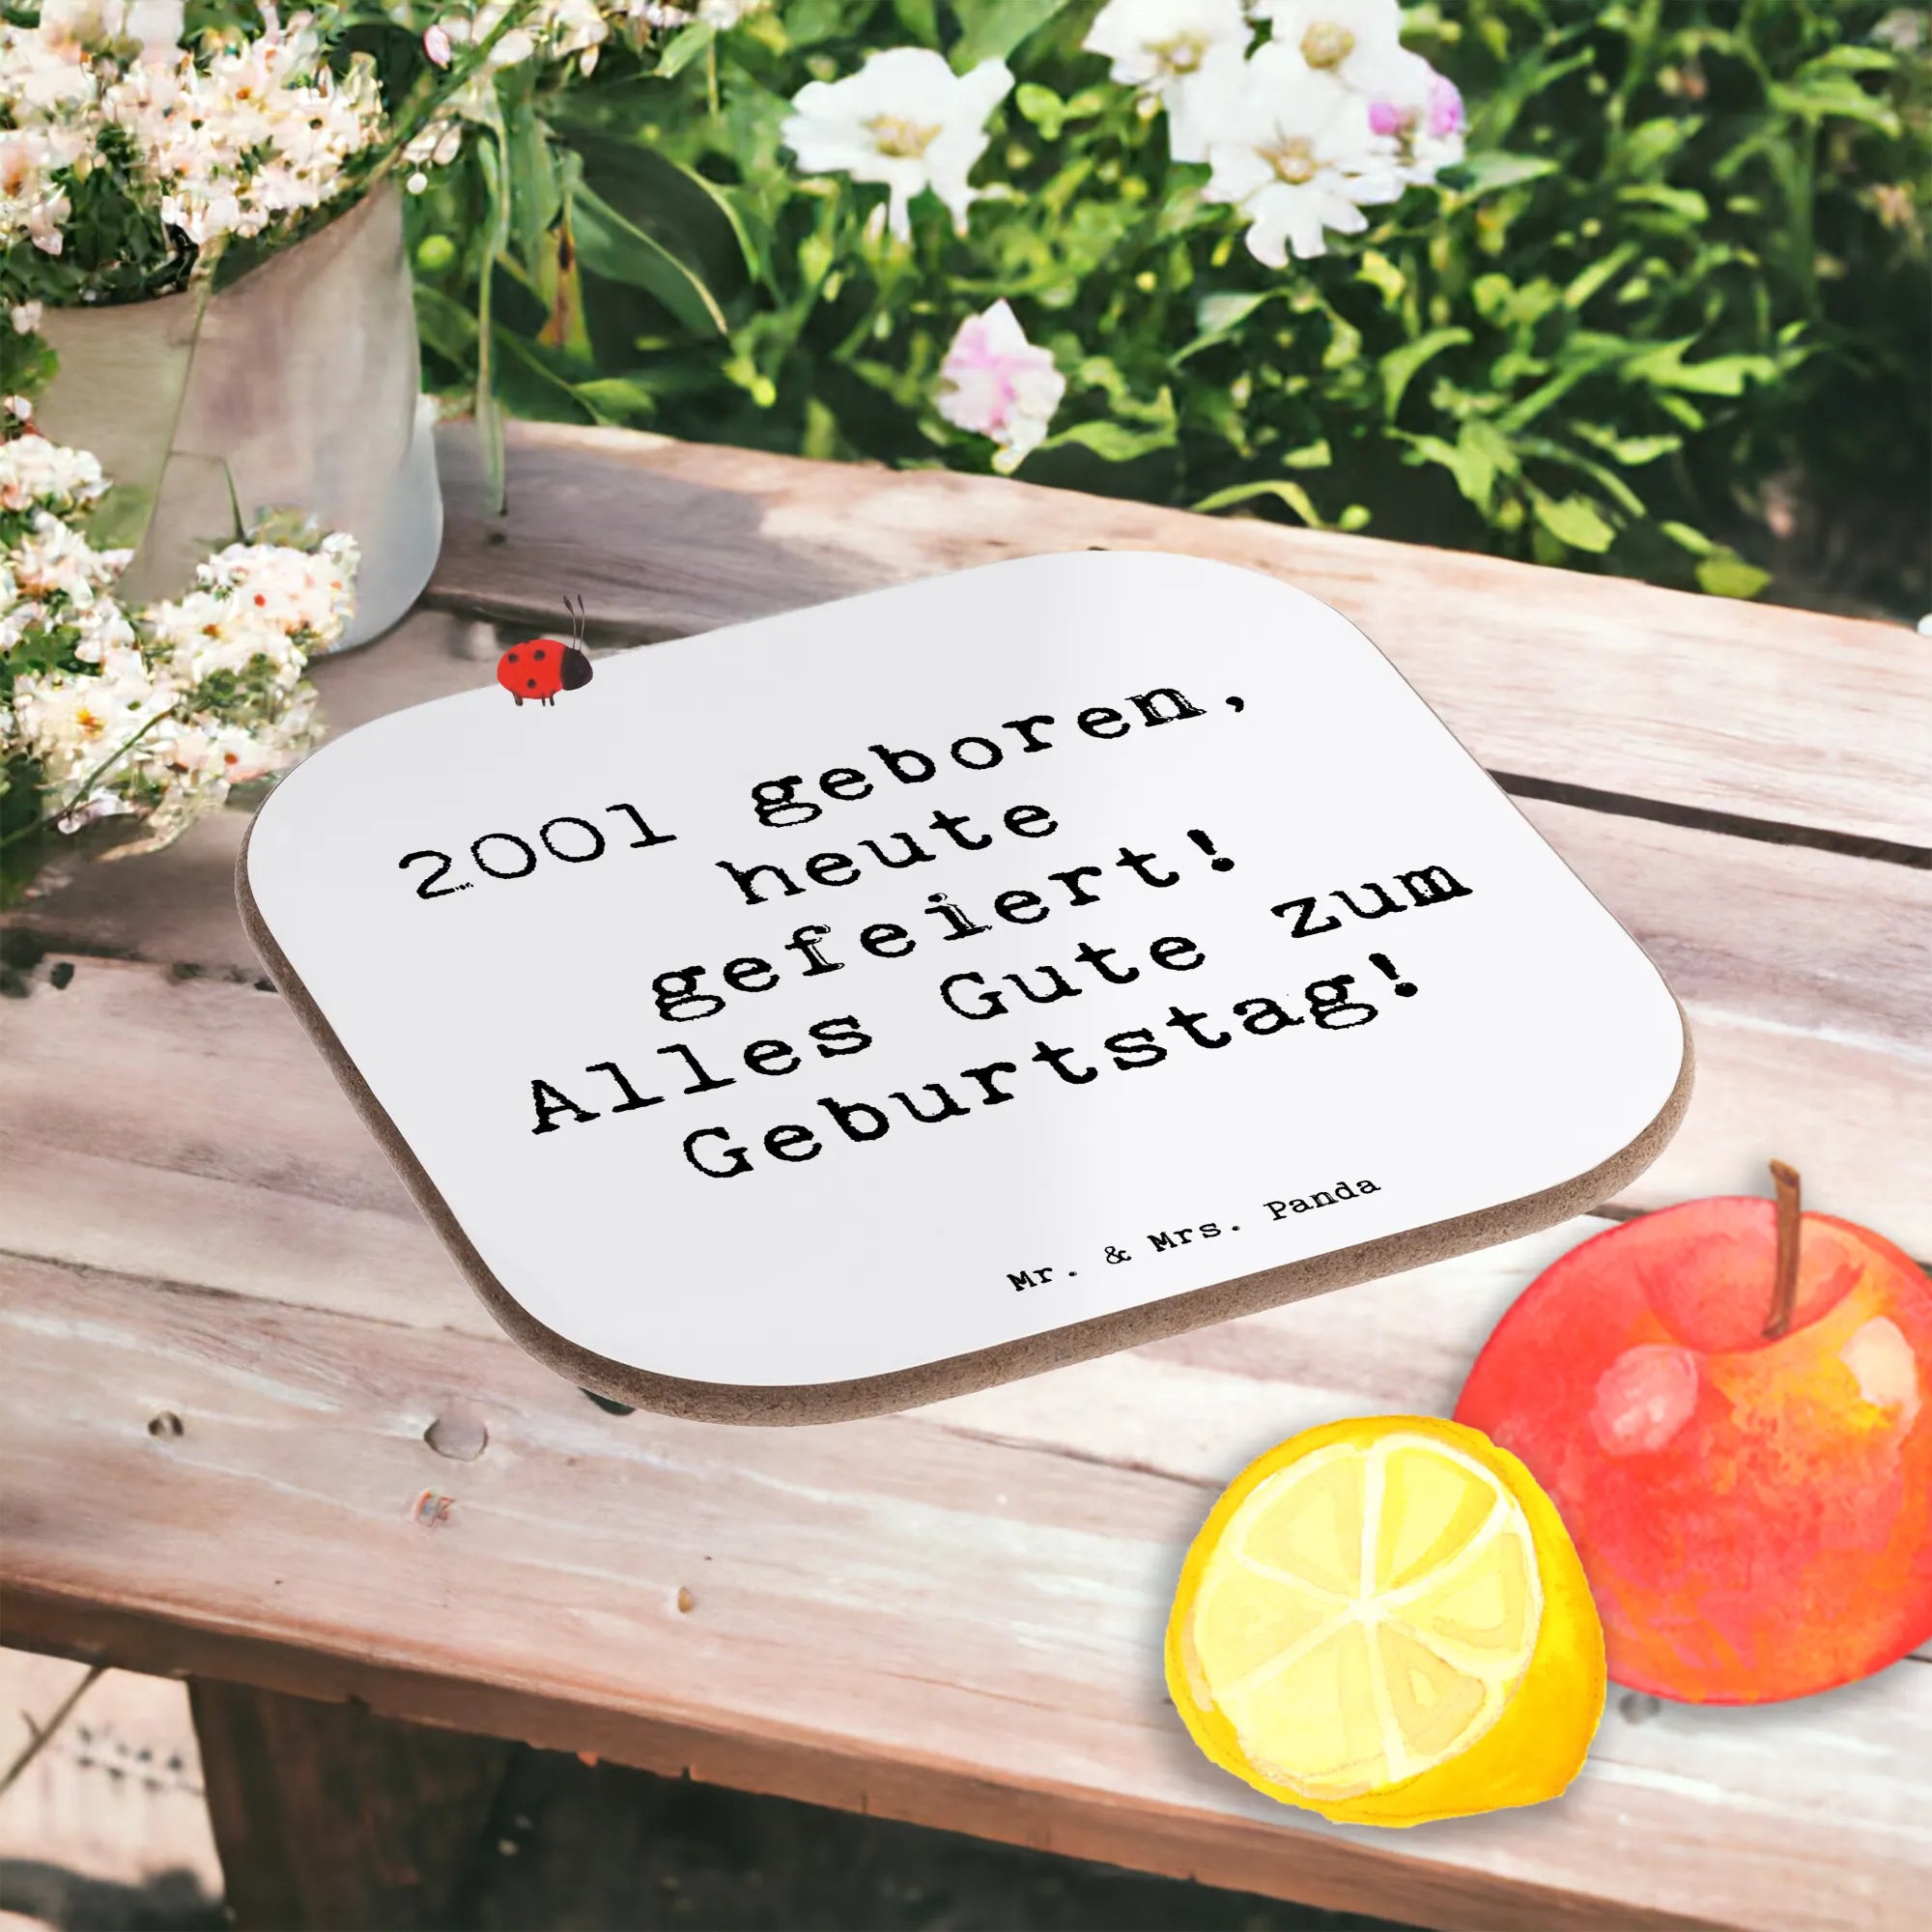 2001 geboren,
heute
gefeiert!
Alles Gute zum
Geburtstag!
Mr. & Mrs. Panda